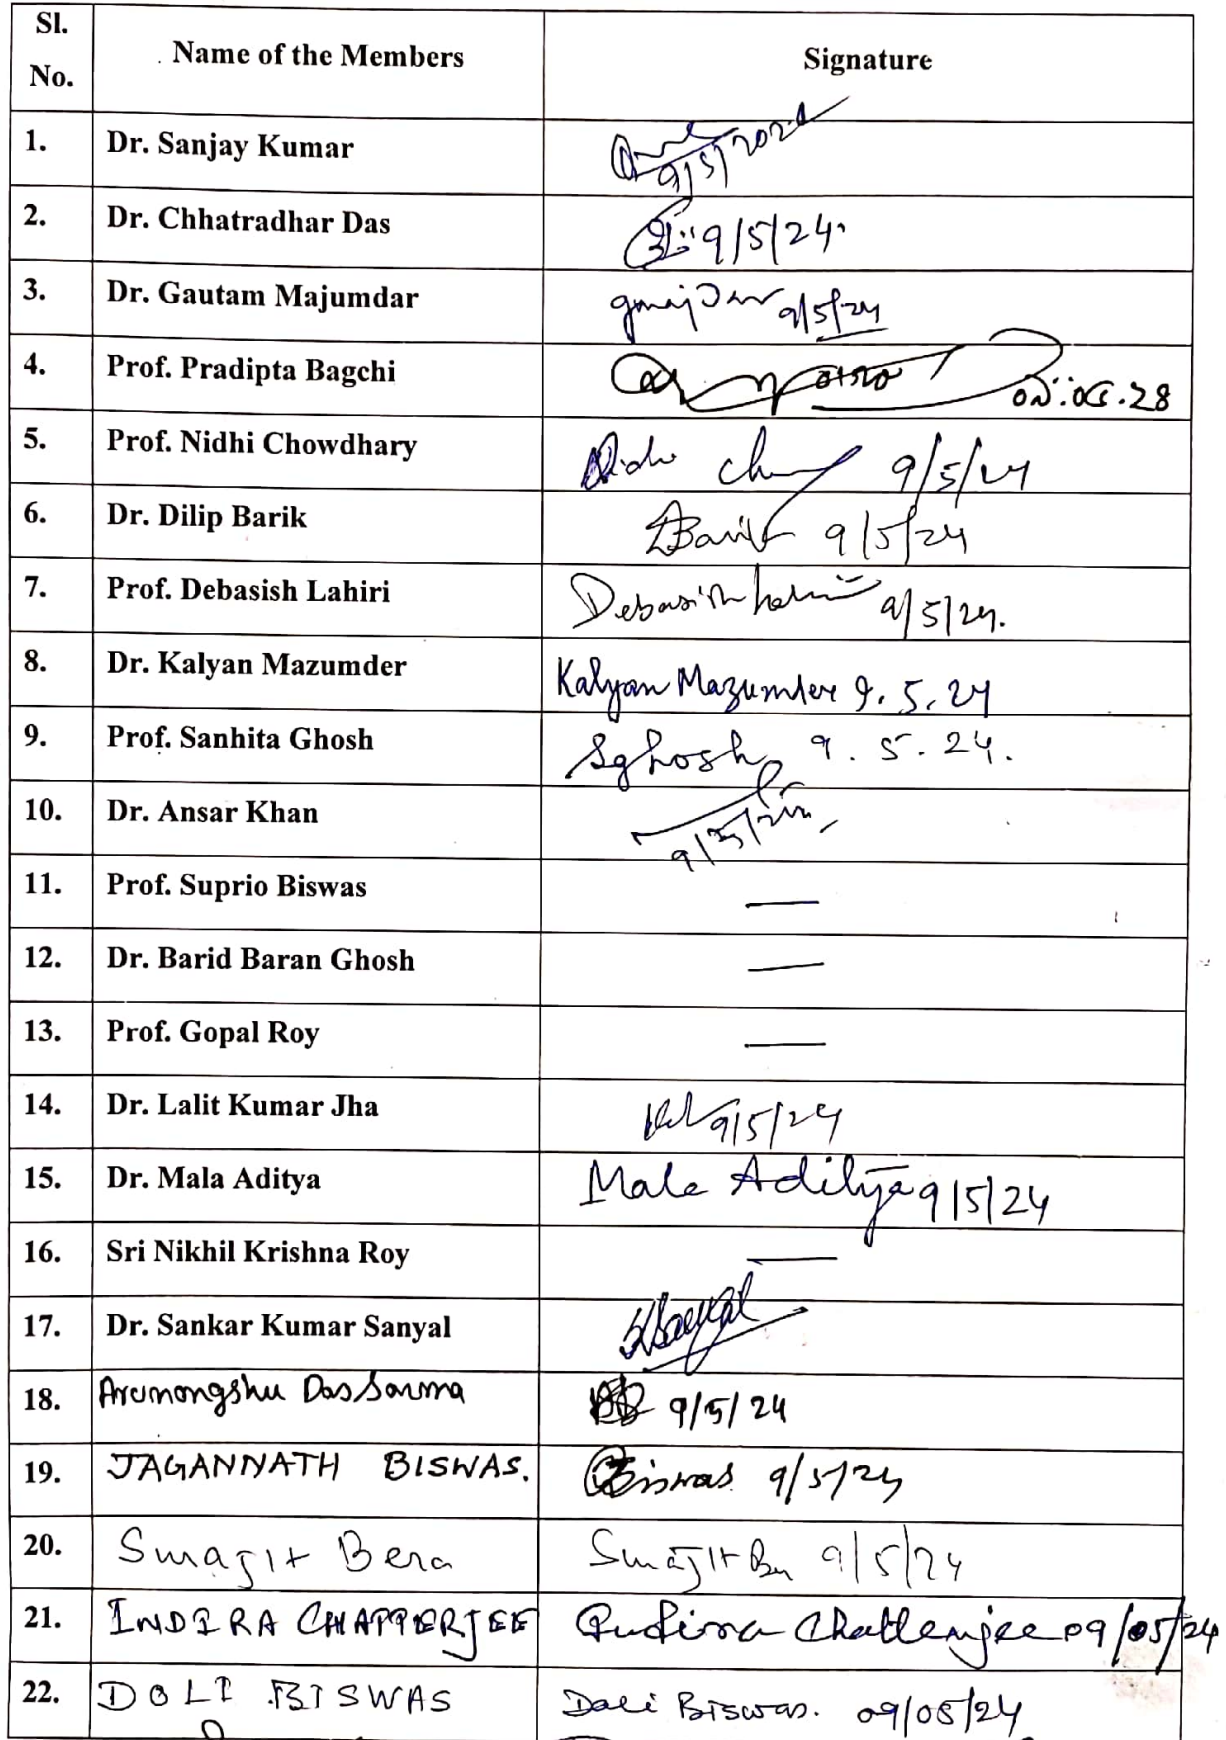 Sl. No. Name of the Members Signature
1. Dr. Sanjay Kumar 9/5/2024
2. Dr. Chhatradhar Das 9/5/24.
3. Dr. Gautam Majumdar 9/5/24
4. Prof. Pradipta Bagchi ০৯.০৫.২৪
5. Prof. Nidhi Chowdhary 9/5/24
6. Dr. Dilip Barik Barik 9/5/24
7. Prof. Debasish Lahiri Debasish Lahiri 9/5/24.
8. Dr. Kalyan Mazumder Kalyan Mazumder 9.5.24
9. Prof. Sanhita Ghosh SGhosh 9.5.24.
10. Dr. Ansar Khan
11. Prof. Suprio Biswas —
12. Dr. Barid Baran Ghosh —
13. Prof. Gopal Roy —
14. Dr. Lalit Kumar Jha 9/5/24
15. Dr. Mala Aditya Mala Aditya 9/5/24
16. Sri Nikhil Krishna Roy —
17. Dr. Sankar Kumar Sanyal SKSanyal
18. DasSarma 9/5/24
19. JAGANNATH BISWAS. Biswas 9/5/24
20. Bera 9/5/24
21. INDIRA CHATTERJEE Indira Chatterjee 09/05/24
22. DOLI BISWAS Doli Biswas. 09/05/24